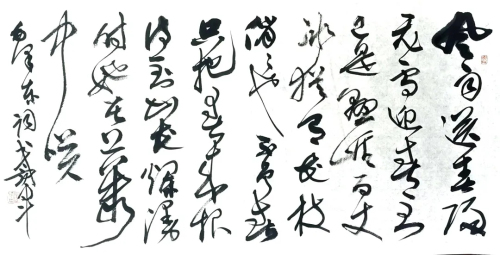 风雨送春归
飞雪迎春到
已是悬崖百丈
冰犹有花枝
俏俏也不争春
只把春来报
待到山花烂漫
时她在丛
中笑
毛泽东词